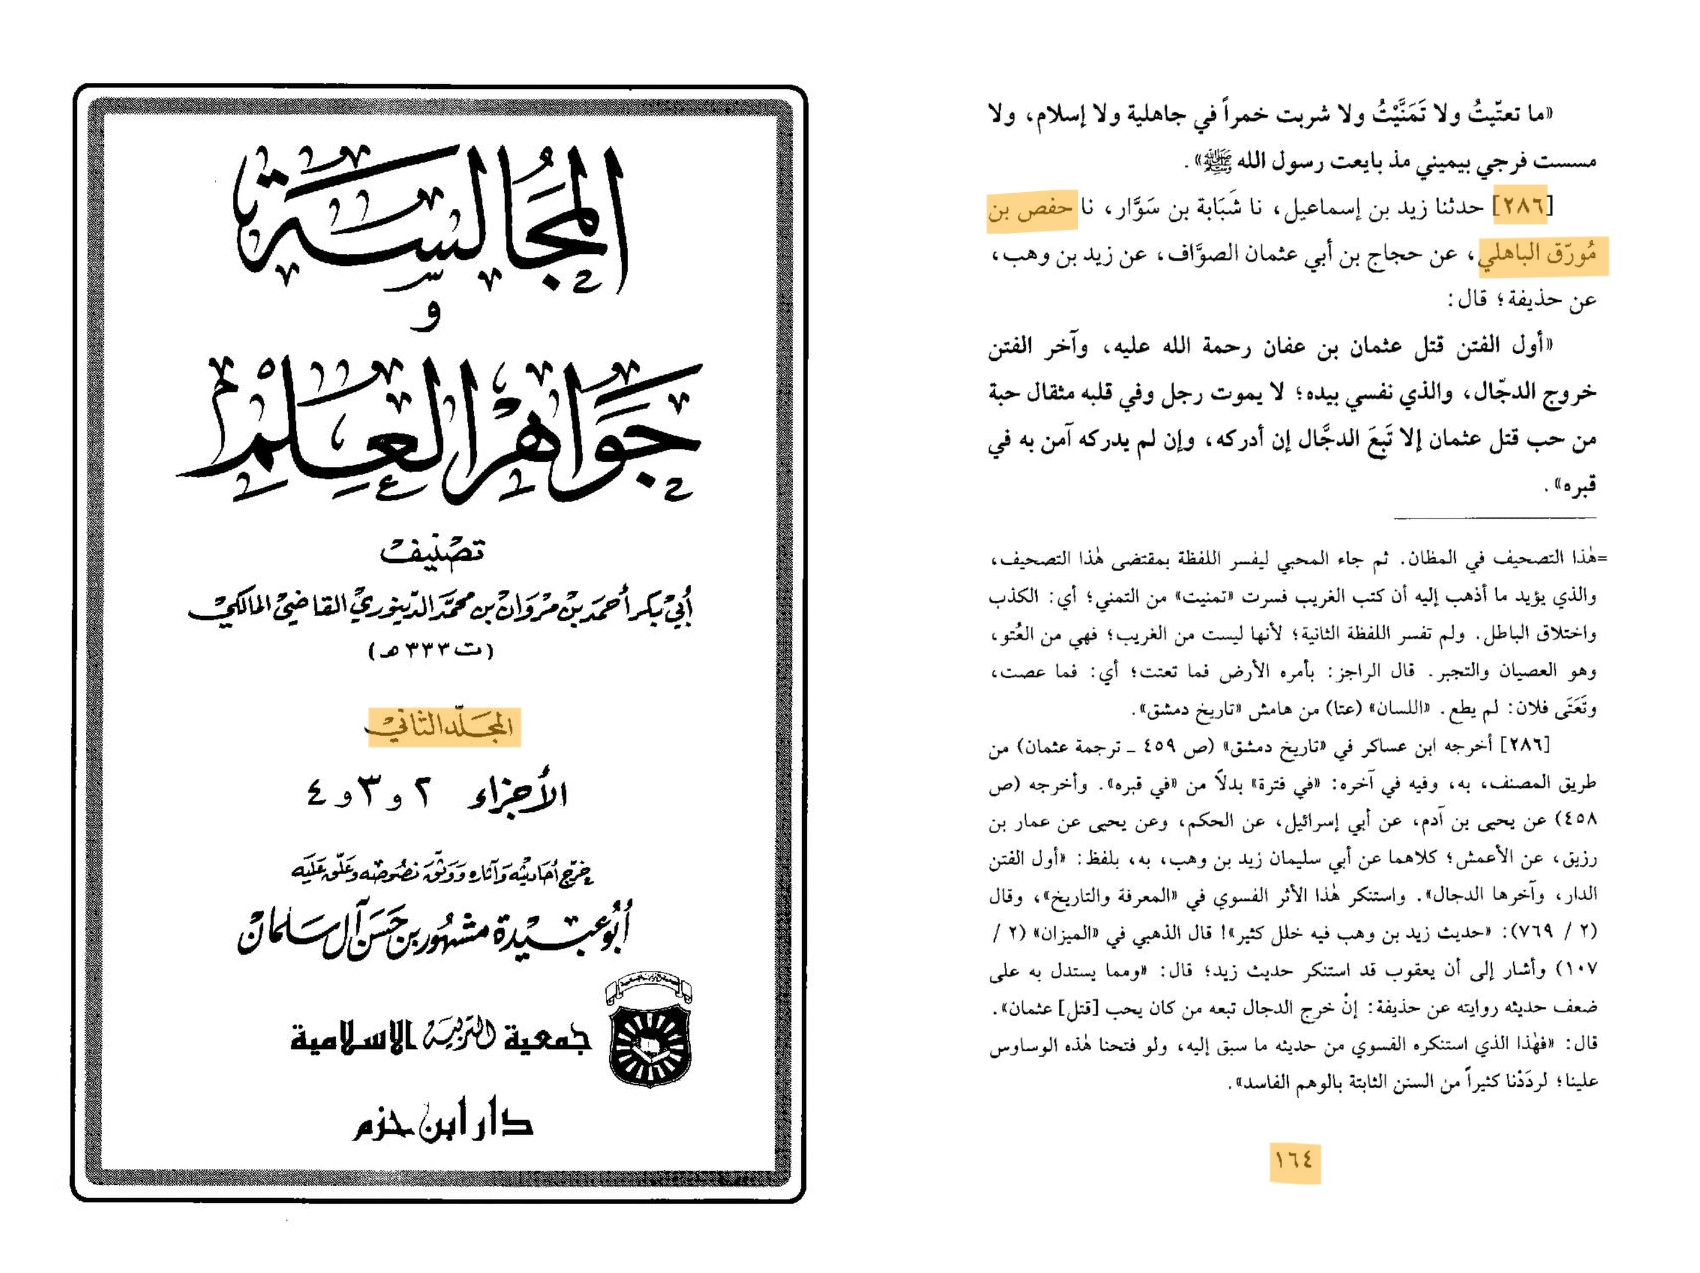 المجالسة
و
جواهر العلم
تصنيف
أبي بكر أحمد بن مروان بن محمد الدينوري القاضي المالكي
(ت ٣٣٣ هـ)
المجلّد الثاني
الأجزاء ٢ و ٣ و ٤
خرّج أحاديثه وآثاره ووثّق نصوصه وعلّق عليه
أبو عبيدة مشهور بن حسن آل سلمان
جمعية التربية الاسلامية
دار ابن حزم
«ما تعتّيتُ ولا تَمَنَّيْتُ ولا شربت خمراً في جاهلية ولا إسلام، ولا
مسست فرجي بيميني مذ بايعت رسول الله ﷺ».
[٢٨٦] حدثنا زيد بن إسماعيل، نا شَبَابة بن سَوَّار، نا حفص بن
مُورّق الباهلي، عن حجاج بن أبي عثمان الصوَّاف، عن زيد بن وهب،
عن حذيفة؛ قال:
«أول الفتن قتل عثمان بن عفان رحمة الله عليه، وآخر الفتن
خروج الدجّال، والذي نفسي بيده؛ لا يموت رجل وفي قلبه مثقال حبة
من حب قتل عثمان إلا تَبِعَ الدجَّال إن أدركه، وإن لم يدركه آمن به في
قبره».
=هٰذا التصحيف في المظان. ثم جاء المحبي ليفسر اللفظة بمقتضى هٰذا التصحيف،
والذي يؤيد ما أذهب إليه أن كتب الغريب فسرت «تمنيت» من التمني؛ أي: الكذب
واختلاق الباطل. ولم تفسر اللفظة الثانية؛ لأنها ليست من الغريب؛ فهي من العُتو،
وهو العصيان والتجبر. قال الراجز: بأمره الأرض فما تعتت؛ أي: فما عصت،
وتَعَتَّى فلان: لم يطع. «اللسان» (عتا) من هامش «تاريخ دمشق».
[٢٨٦] أخرجه ابن عساكر في «تاريخ دمشق» (ص ٤٥٩ ـ ترجمة عثمان) من
طريق المصنف، به، وفيه في آخره: «في فترة» بدلاً من «في قبره». وأخرجه (ص
٤٥٨) عن يحيى بن آدم، عن أبي إسرائيل، عن الحكم، وعن يحيى عن عمار بن
رزيق، عن الأعمش؛ كلاهما عن أبي سليمان زيد بن وهب، به، بلفظ: «أول الفتن
الدار، وآخرها الدجال». واستنكر هٰذا الأثر الفسوي في «المعرفة والتاريخ»، وقال
(٢ / ٧٦٩): «حديث زيد بن وهب فيه خلل كثير»! قال الذهبي في «الميزان» (٢ /
١٠٧) وأشار إلى أن يعقوب قد استنكر حديث زيد؛ قال: «ومما يستدل به على
ضعف حديثه روايته عن حذيفة: إنْ خرج الدجال تبعه من كان يحب [قتل] عثمان».
قال: «فهٰذا الذي استنكره الفسوي من حديثه ما سبق إليه، ولو فتحنا هٰذه الوساوس
علينا؛ لردَدْنا كثيراً من السنن الثابتة بالوهم الفاسد».
١٦٤